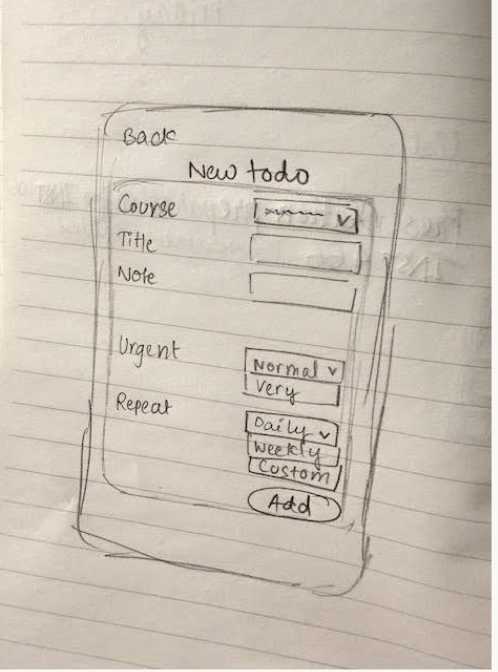 Back
New todo
Course
Title
Note
Urgent
Normal
Very
Repeat
Daily
Weekly
Custom
Add